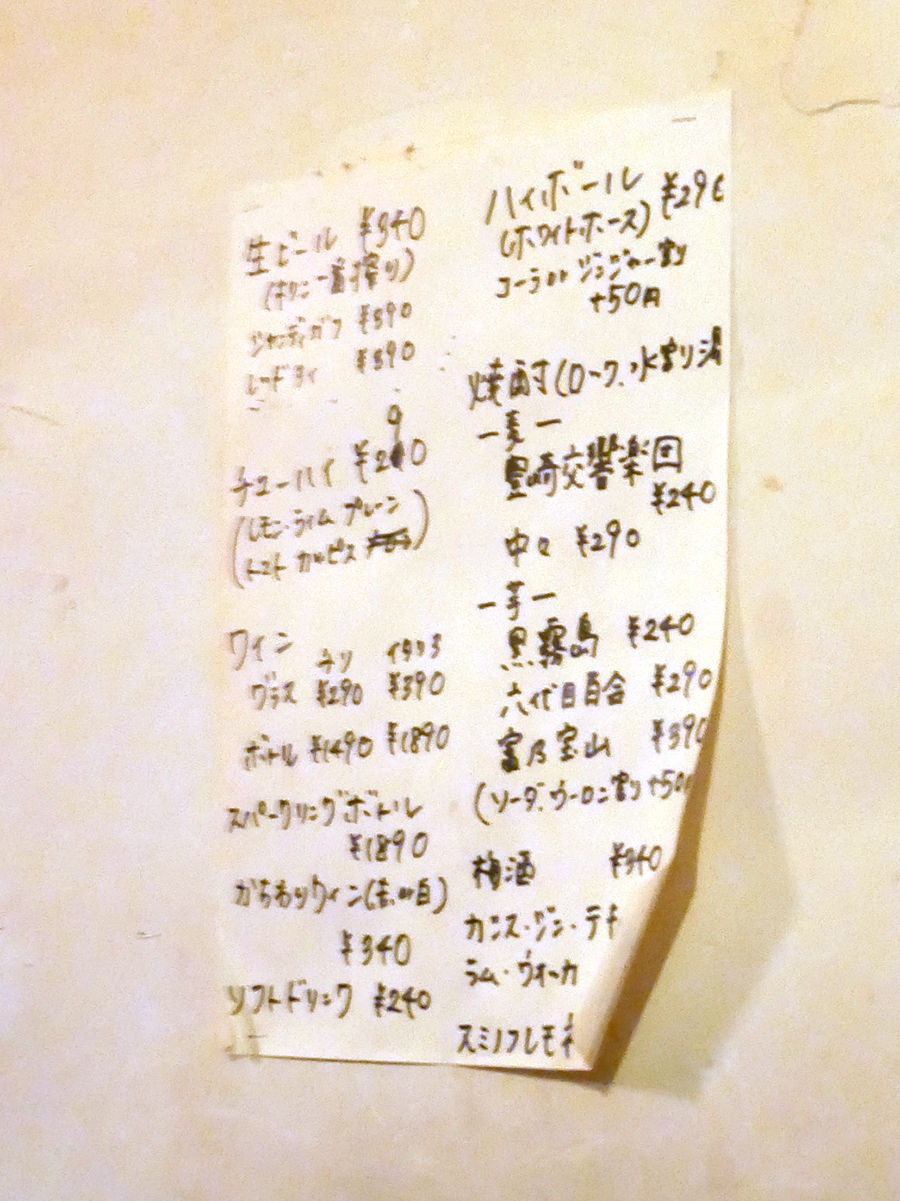 生ビール ¥340
(キリン一番搾り)
シャンディガフ ¥390
レッドアイ ¥390
チューハイ ¥290
(レモン・ライム プレーン
トマト カルピス)
ワイン
チリ イタリア
グラス ¥290 ¥390
ボトル ¥1490 ¥1890
スパークリングボトル
¥1890
かちわりワイン(赤or白)
¥340
ソフトドリンク ¥240
ハイボール ¥290
(ホワイトホース)
コーラor ジンジャー割り
+50円
焼酎(ロック、水割り
ー麦ー
豊崎交響楽団
¥240
中々 ¥290
ー芋ー
黒霧島 ¥240
六代目百合 ¥290
富乃宝山 ¥390
(ソーダ、ウーロン割り +50
梅酒 ¥340
カシス・ジン・テキ
ラム・ウォッカ
スミノフレモネ